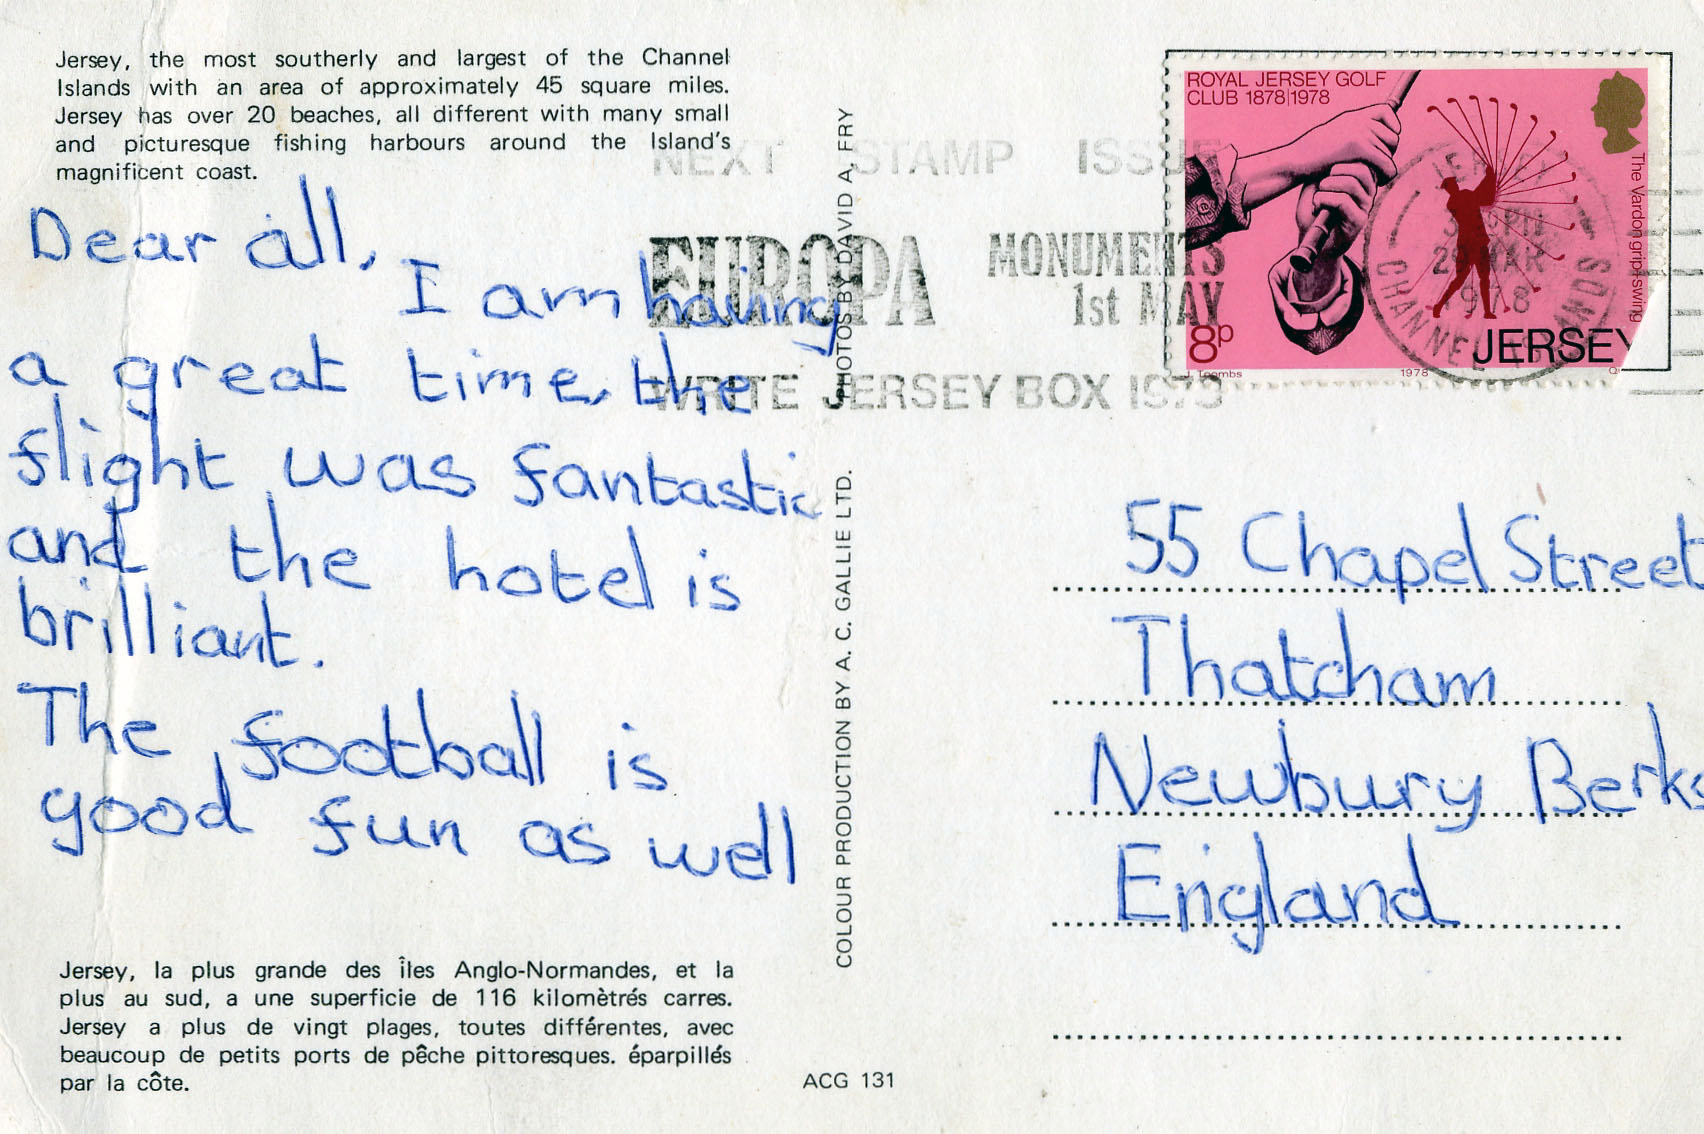 Jersey, the most southerly and largest of the Channel
Islands with an area of approximately 45 square miles.
Jersey has over 20 beaches, all different with many small
and picturesque fishing harbours around the Island's
magnificent coast.
Dear all,
I am having
a great time, the
flight was fantastic
and the hotel is
brilliant.
The football is
good fun as well
Jersey, la plus grande des îles Anglo-Normandes, et la
plus au sud, a une superficie de 116 kilomètrés carres.
Jersey a plus de vingt plages, toutes différentes, avec
beaucoup de petits ports de pêche pittoresques. éparpillés
par la côte.
COLOUR PRODUCTION BY A. C. GALLIE LTD.
PHOTOS BY DAVID A. FRY
ACG 131
NEXT STAMP ISSUE
EUROPA
MONUMENTS
1st MAY
WRITE JERSEY BOX
ROYAL JERSEY GOLF
CLUB 1878|1978
The Vardon grip+swing
8p
JERSEY
J. Toombs
1978
JERSEY
PM
29 MAR
1978
CHANNEL ISLANDS
55 Chapel Street
Thatcham
Newbury Berks
England